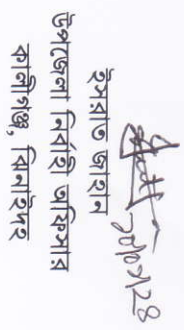 ইসরাত জাহান
উপজেলা নির্বাহী অফিসার
কালীগঞ্জ, ঝিনাইদহ